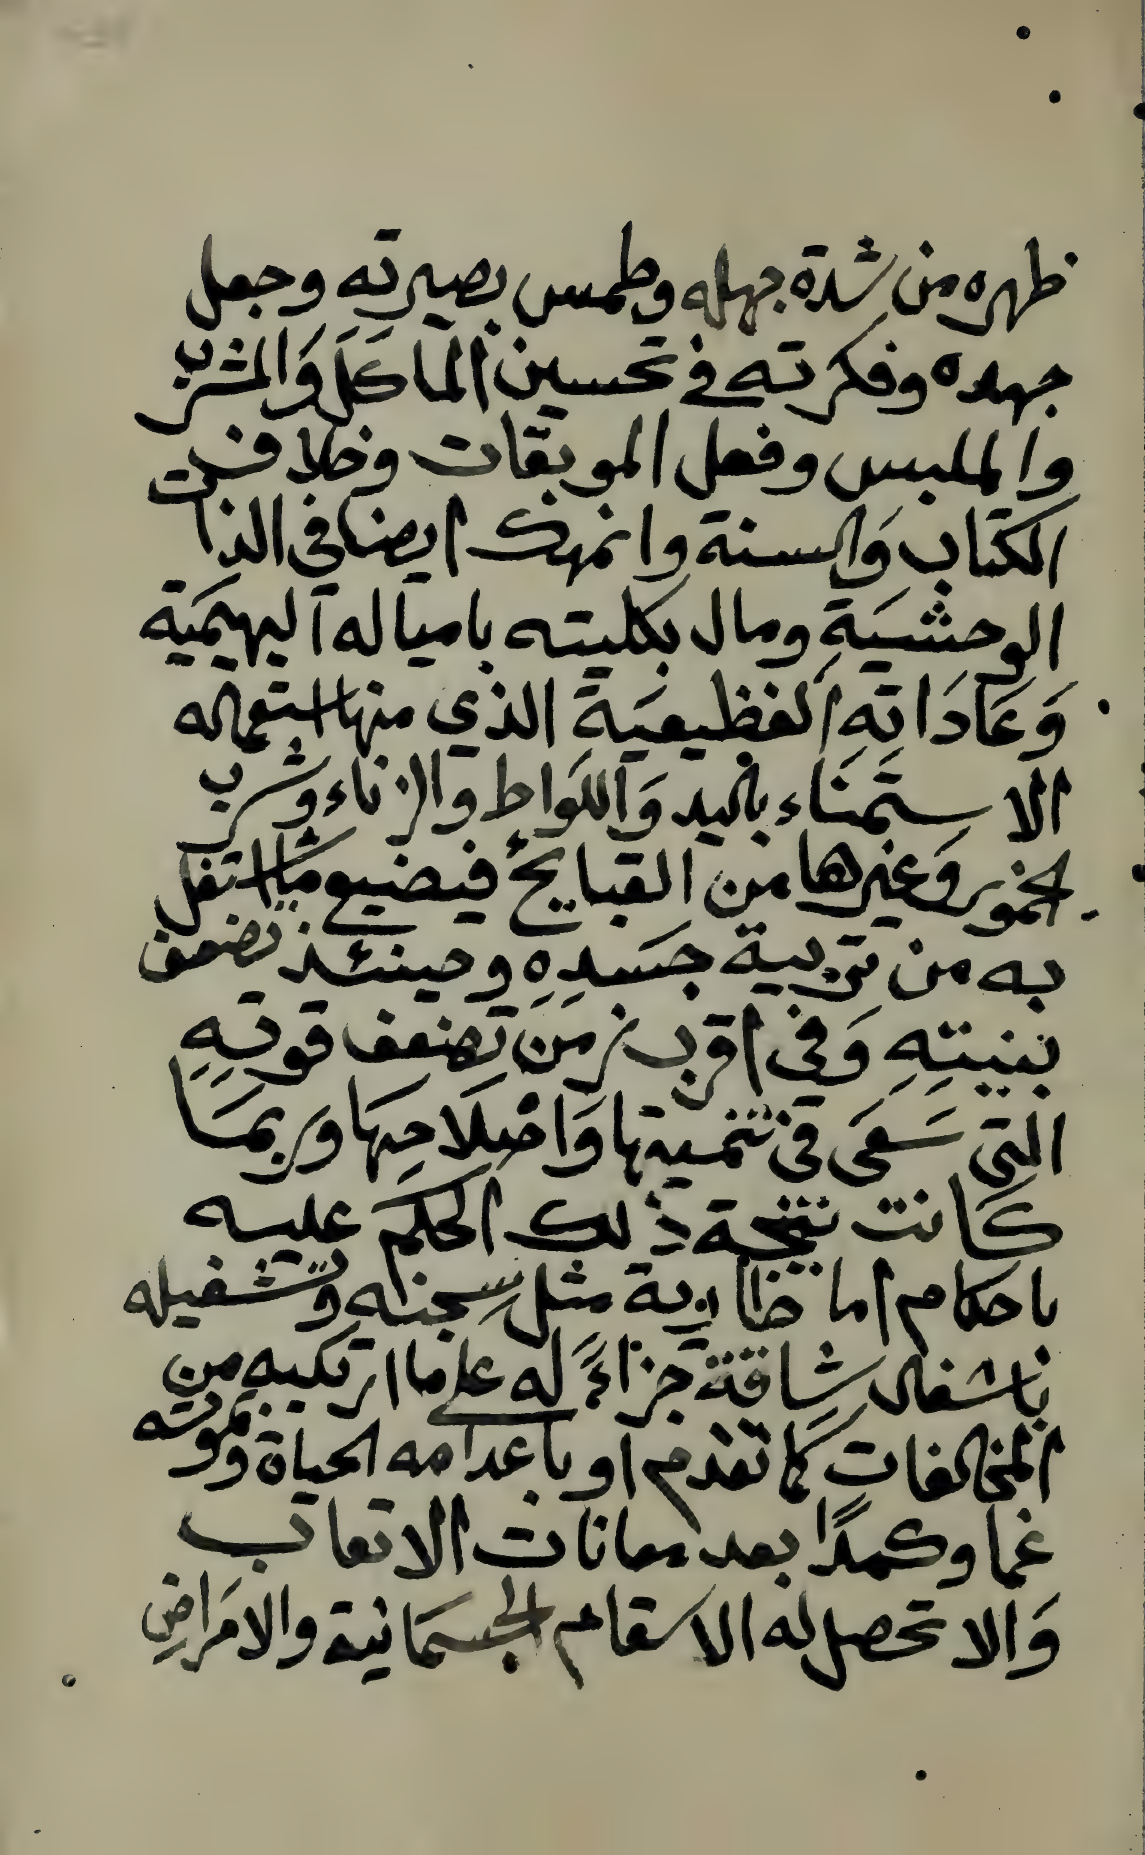 ظهره من شدة جهله وطمس بصيرته وجعل
جهده وفكرته في تحسين المَاكَلَ وَالمشرب
والملبس وفعل الموبقات وخلافت
الكتاب وَالسنة وانهمك ايضا في الذات
الوحشيَةِ ومال بكليته بامياله البهيميَة
وَعَادَاتهِ الفظيعيَة الذي منها استعماله
الاستمنَاء باليد وَاللوَاط والزناء وشرب
الخمور وَغيرها من القبايحُ فيضيع مَا اشتغل
به من تربية جسَدِهِ وحينئذ تضعف
بنيتهِ وَفي اقرب زمَن تضعف قوتهِ
التي سَعَى في تنميتها وَاصْلَاحِهَا وَربمَا
كَانت نتيجة ذلك الحكم عليه
باحكام اما مثل سِجنه وتشغيله
باشغال شاقة جزاءً له على ما ارتكبه من
المخالفات كَما تقدم او باعدامه الحياة وبموته
غما وكمدًا بعد معانات الاتعاب
وَالا تحصل له الاسقام الجسمَانية والامرَاضِ